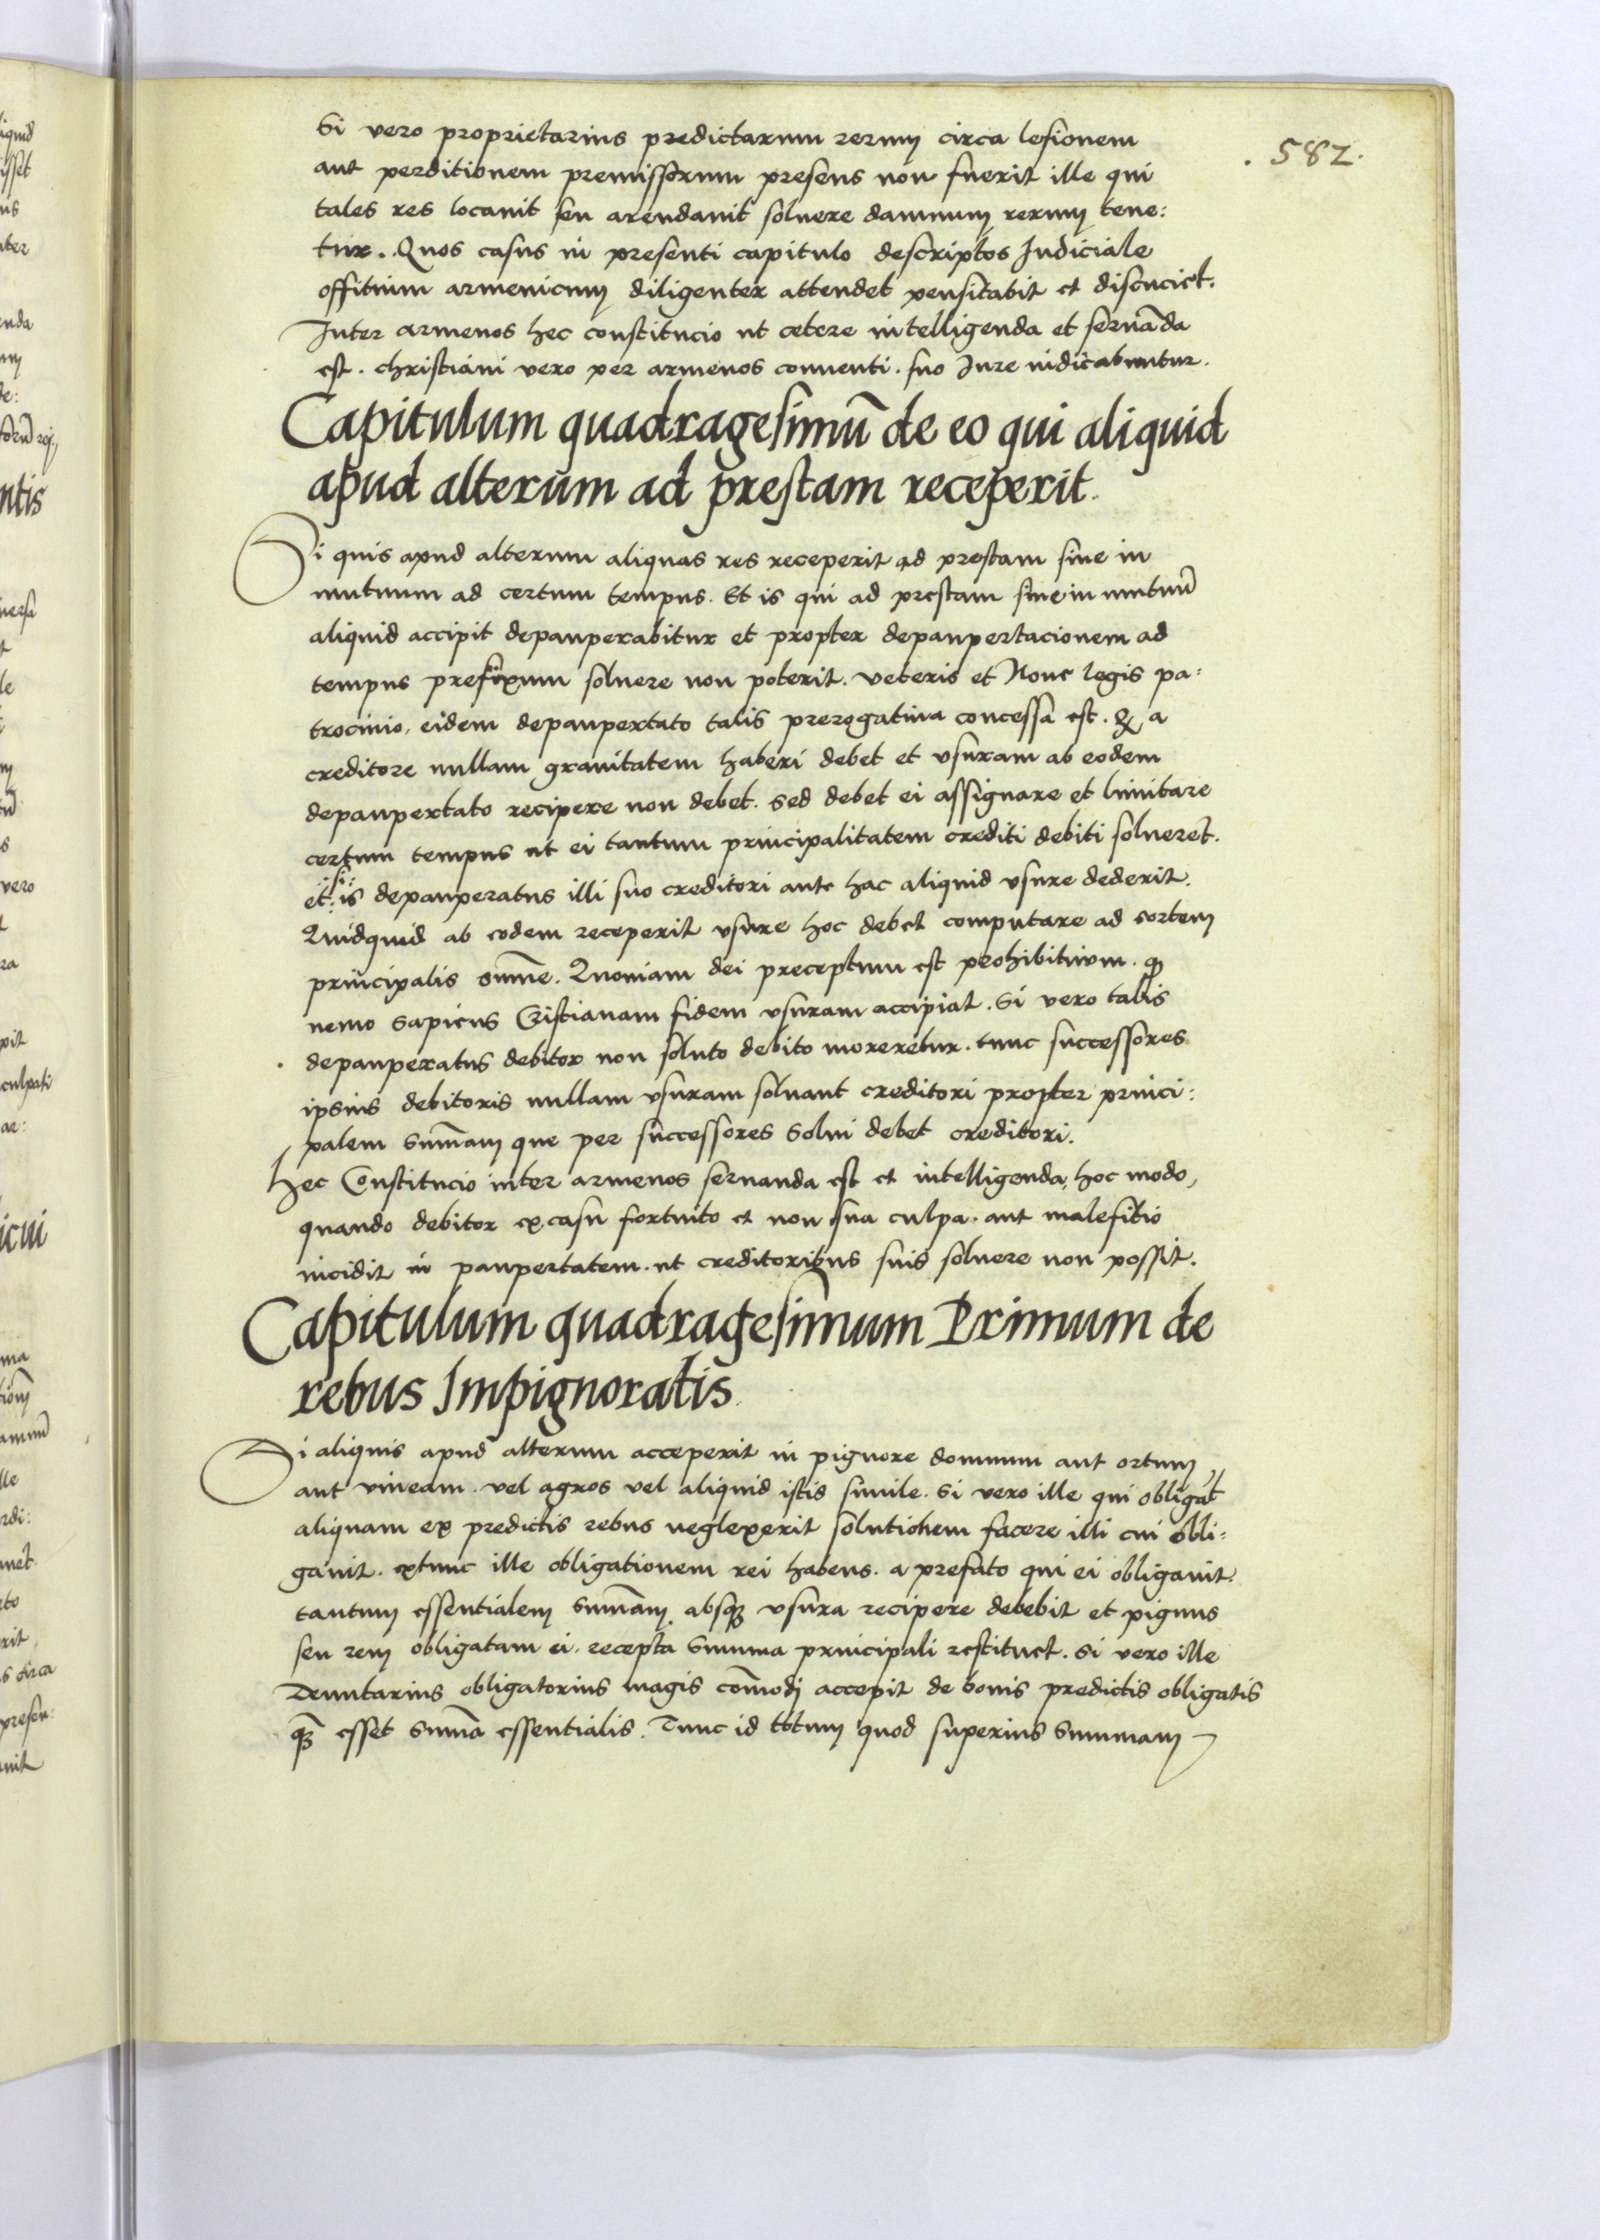 . 582.
Si vero proprietarius predictarum rerum circa lesionem
aut perditionem premissorum presens non fuerit ille qui
tales res locauit seu arendauit soluere damnum rerum tene:
tur. Quos casus in presenti capitulo descriptos Iudiciale
offitium armenicum diligenter attendet pensitabit et discuciet.
Inter armenos hec constitucio ut cetere intelligenda et seruanda
est. christiani vero per armenos conuenti. suo Iure iudicabuntur.
Capitulum quadragesimū de eo qui aliquid
apud alterum ad prestam receperit.
Si quis apud alterum aliquas res receperit ad prestam siue in
mutuum ad certum tempus. Et is qui ad prestam siue in mutuū
aliquid accipit depauperabitur et propter depaupertacionem ad
tempus prefixum soluere non poterit. veteris et Noue legis pa:
trocinio, eidem depaupertato talis prerogatiua concessa est. ꝙ a
creditore nullam grauitatem haberi debet et vsuram ab eodem
depaupertato recipere non debet. sed debet ei assignare et limitare
certum tempus ut ei tantum principalitatem crediti debiti solueret.
et si is depauperatus illi suo creditori ante hac aliquid vsure dederit.
Quidquid ab eodem receperit vsure hoc debet computare ad sortem
principalis sūme. Quoniam dei preceptum est prohibitiuum. ꝙ
nemo sapiens Cristianam fidem vsuram accipiat. Si vero talis
depauperatus debitor non soluto debito moreretur. tunc successores
ipsius debitoris nullam vsuram soluant creditori propter princi:
palem sum̄am que per successores solui debet creditori.
Hec Constitucio inter armenos seruanda est et intelligenda, hoc modo,
quando debitor ex casu fortuito et non sua culpa. aut malefitio
incidit in paupertatem. ut creditoribus suis soluere non possit.
Capitulum quadragesimum Primum de
rebus Impignoratis.
Si aliquis apud alterum acceperit in pignore domum aut ortum
aut vineam. vel agros vel aliquid istis simile. Si vero ille qui obligat
aliquam ex predictis rebus neglexerit solutionem facere illi cui obli:
gauit. extunc ille obligationem rei habens. a prefato qui ei obligauit.
tantum essentialem sum̄am absqꝫ vsura recipere debebit et pignus
seu rem obligatam ei. recepta summa principali restituet. Si vero ille
obligatorius magis com̄odi accepit de bonis predictis obligatis
esset sum̄a essentialis. Tunc id totum quod superius summam